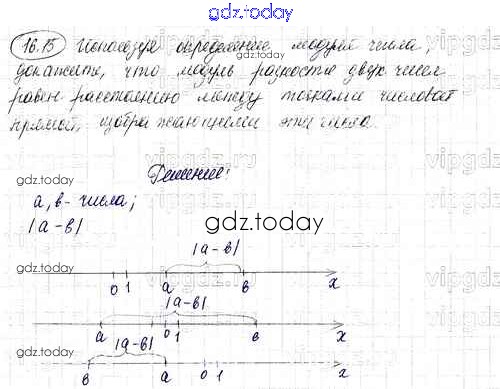 gdz.today
16.15 Используя определение модуля числа,
докажите, что модуль разности двух чисел
равен расстоянию между точками числовой
прямой, изображающими эти числа.
gdz.today
Решение:
gdz.today
a, в - числа;
|a-в|
gdz.today
|a-в|
gdz.today
0 1 a в x
|a-в|
gdz.today
a 0 1 в x
|a-в|
gdz.today
в a 0 1 x